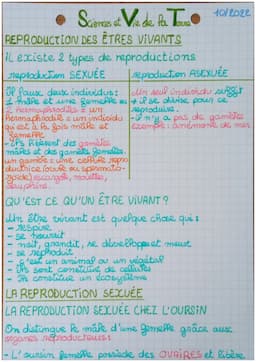 Sciences et Vie de la Terre
10/2022
REPRODUCTION DES ÊTRES VIVANTS
il existe 2 types de reproductions
reproduction SEXUÉE
Il faux deux individus :
1 mâle et une femelle ou
2 hermaphrodites = un
hermaphrodite = un individu
qui est à la fois mâle et
femelle
- Ils pèsent des gamètes
mâles et des gamètes femelles.
un gamète : une cellule repro
ductrice (ovule ou spermato-
zoïde) escargot, mouettes,
dauphins.
reproduction ASEXUÉE
Un seul individu suffit
+ il se divise pour se
reproduire.
+ il n'y a pas de gamètes
exemple : anémone de mer
QU'EST CE QU'UN ÊTRE VIVANT ?
Un être vivant est quelque chose qui :
- respire
- se nourrit
- naît, grandit, se développe et meurt
- se reproduit
- C'est un animal ou un végétal
- Ils sont constitué de cellules
- Ils constitue un écosystème
LA REPRODUCTION SEXUÉE
LA REPRODUCTION SEXUÉE CHEZ L'OURSIN
On distingue le mâle d'une femelle grâce aux
organes reproducteurs :
- L'oursin femelle possède des OVAIRES et libère